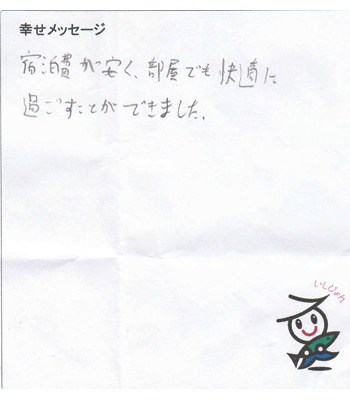 幸せメッセージ
宿泊費が安く、部屋でも快適に
過ごすことができました。
いしぴょん